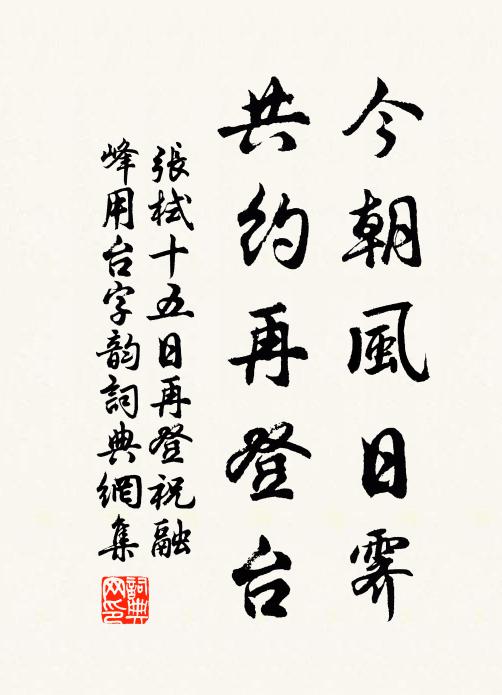 今朝風日霽
共約再登台
張栻十五日再登祝融
峰用台字韵詞典網集